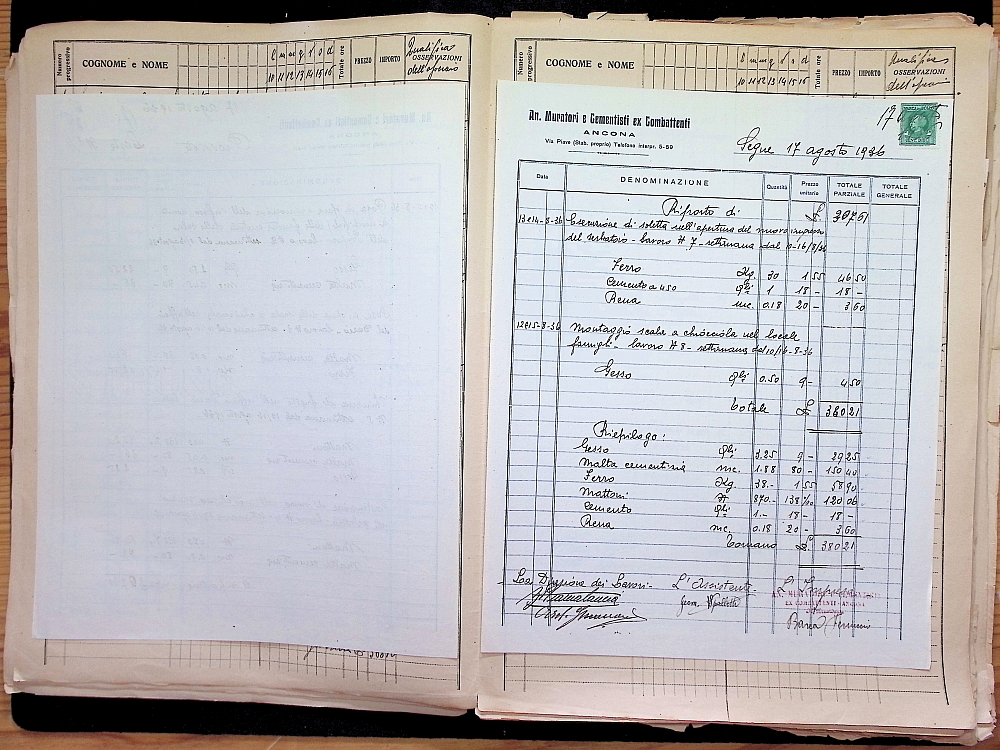 Numero progressivo COGNOME e NOME l m m g 1 s d Totale ore PREZZO IMPORTO Qualifica OSSERVAZIONI dell'operaio
10 11 12 13 14 15 16
Numero progressivo COGNOME e NOME Totale ore PREZZO IMPORTO Qualifica OSSERVAZIONI dell'operaio
10 11 12 13 14 15 16
An. Muratori e Cementisti ex Combattenti
ANCONA
Via Piave (Stab. proprio) Telefono interpr. 5-59
Segue 17 agosto 1936
Data DENOMINAZIONE Quantità Prezzo unitario TOTALE PARZIALE TOTALE GENERALE
Riporto di £
13e14-8-36 Esecuzione di soletta nell'apertura del nuovo
del serbatoio - lavoro N 7 - settimana dal 10-16/8/36
Ferro Kg. 30 1 55 46 50
Cemento a 450 Qli 1 18 - 18 -
Rena mc. 0.18 20 - 3 60
12e15-8-36 Montaggio scala a chiocciola nel locale
famigli - lavoro N 8 - settimana dal 10/16-8-36
Gesso Qli 0.50 9 - 4 50
Totale £ 380 21
Riepilogo:
Gesso Qli 3.25 9 - 29 25
Malta cementizia mc. 1.88 80 - 150 40
Ferro Kg. 38.- 1 55 58 90
Mattoni N. 870.- 138 ‰ 120 06
Cemento Qli 1.- 18 - 18 -
Rena mc. 0.18 20 - 3 60
Tornano £ 380 21
La Direzione dei Lavori - L'Assistente
Geom.
EX COMBATTENTI - ANCONA